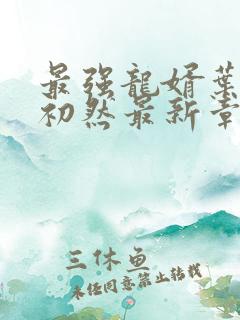 最强龍婿葉
初然最新章
三休鱼
未经同意禁止转载